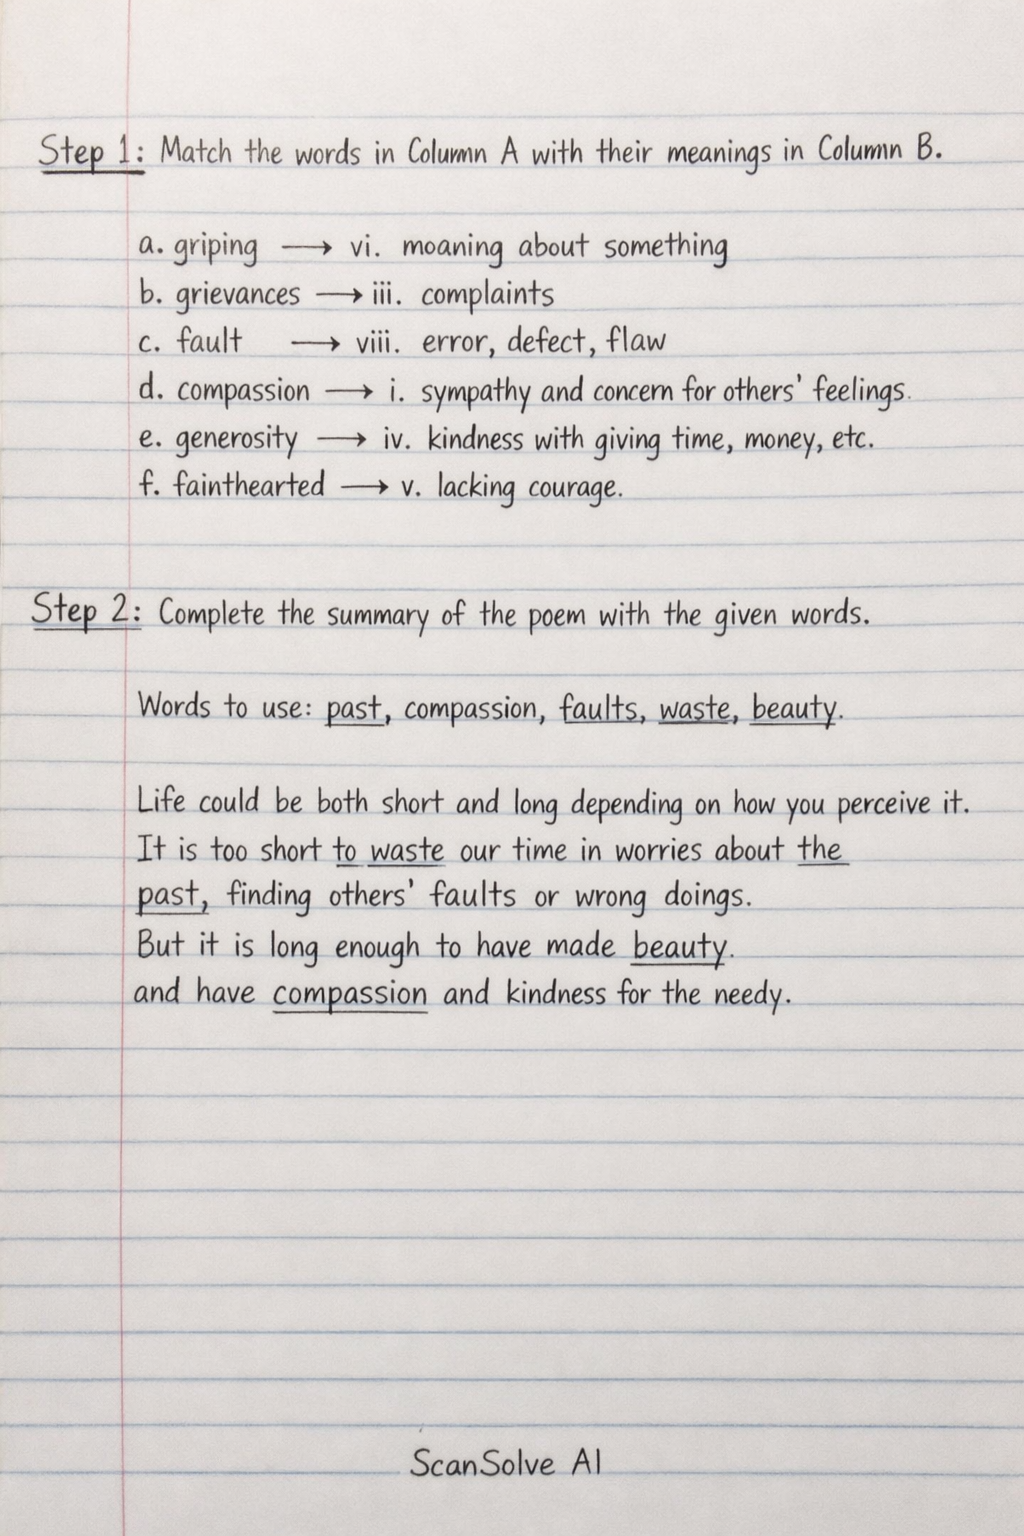 Step 1: Match the words in Column A with their meanings in Column B.
a. griping → vi. moaning about something
b. grievances → iii. complaints
c. fault → viii. error, defect, flaw
d. compassion → i. sympathy and concern for others' feelings.
e. generosity → iv. kindness with giving time, money, etc.
f. fainthearted → v. lacking courage.
Step 2: Complete the summary of the poem with the given words.
Words to use: past, compassion, faults, waste, beauty.
Life could be both short and long depending on how you perceive it.
It is too short to waste our time in worries about the
past, finding others' faults or wrong doings.
But it is long enough to have made beauty.
and have compassion and kindness for the needy.
ScanSolve AI